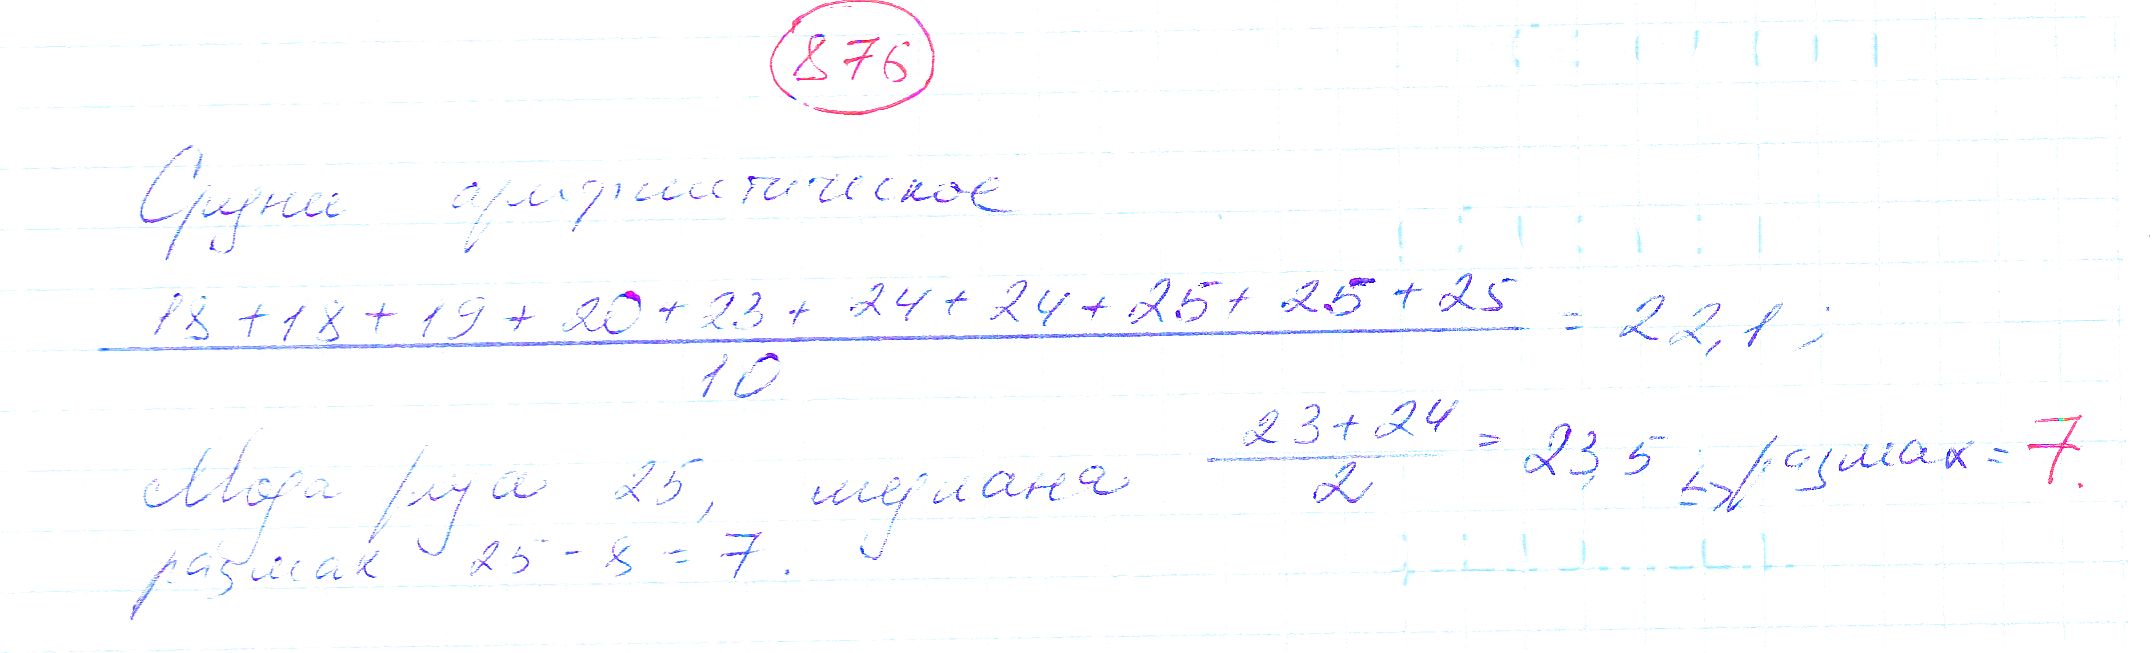 876
Средни арифметическое
18+18+19+20+23+24+24+25+25+25 / 10 = 22,1;
Мода ряда 25, медиана 23+24 / 2 = 23,5 ; размах = 7.
размах 25 - 8 = 7.